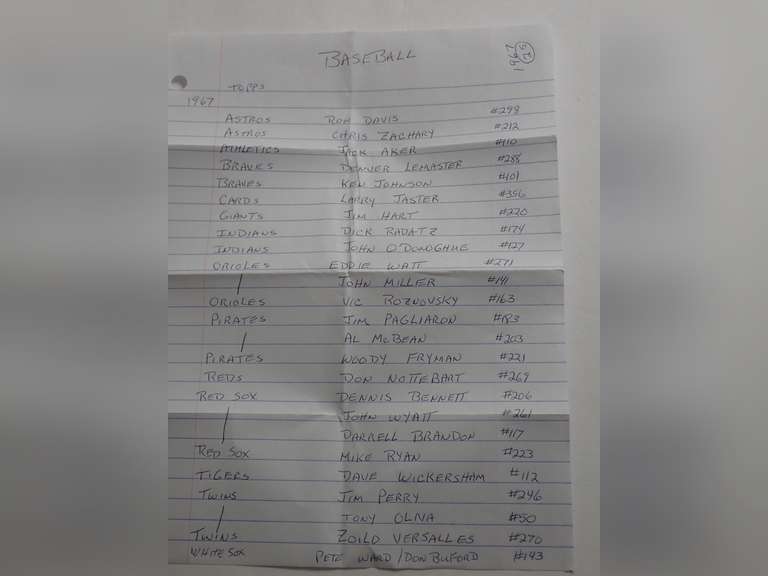 BASEBALL
1967
25
TOPPS
1967
ASTROS RON DAVIS #298
ASTROS CHRIS ZACHARY #212
ATHLETICS JACK AKER #110
BRAVES DENVER LEMASTER #288
BRAVES KEN JOHNSON #101
CARDS LARRY JASTER #356
GIANTS JIM HART #220
INDIANS DICK RADATZ #174
INDIANS JOHN O'DONOGHUE #127
ORIOLES EDDIE WATT #271
JOHN MILLER #141
ORIOLES VIC ROZNOVSKY #163
PIRATES JIM PAGLIARON #183
AL McBEAN #203
PIRATES WOODY FRYMAN #221
REDS DON NOTTEBART #269
RED SOX DENNIS BENNETT #206
JOHN WYATT #261
DARRELL BRANDON #117
RED SOX MIKE RYAN #223
TIGERS DAVE WICKERSHAM #112
TWINS JIM PERRY #246
TONY OLIVA #50
TWINS ZOILO VERSALLES #270
WHITE SOX PETE WARD/DON BUFORD #143